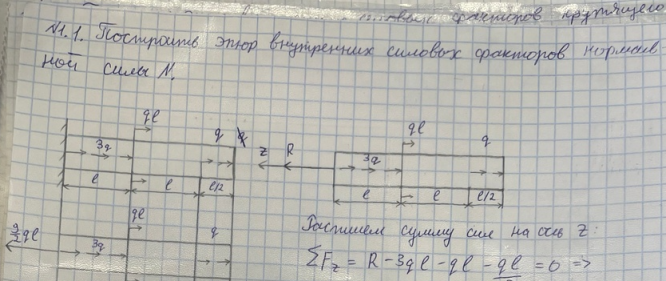 факторов крутящего
№1.1. Построить эпюр внутренних силовых факторов нормаль
ной силы N.
ql
q
3q
l
l
l/2
ql
q
z
R
3q
l
l
l/2
ql
q
3q
ql
Распишем сумму сил на ось z:
ΣFz = R - 3ql - ql - ql = 0 =>